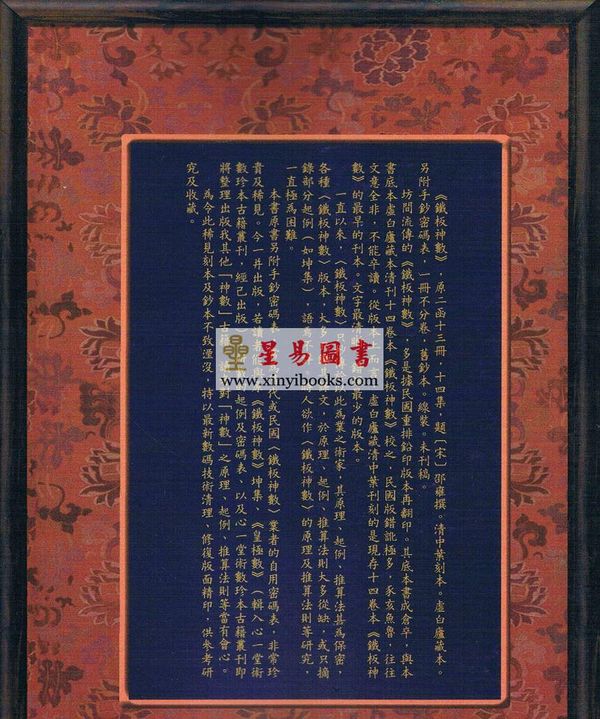 《鐵板神數》，原二函十三冊，十四集，題〔宋〕邵雍撰。清中葉刻本。虛白廬藏本。
另附手鈔密碼表，一冊不分卷，舊鈔本。線裝。未刊稿。
坊間流傳的《鐵板神數》，多是據民國重排鉛印版本再翻印。其底本書成倉卒，與本
書底本虛白廬藏本清刊十四卷本《鐵板神數》校之，民國版錯訛極多，豕亥魚魯，往往
文意全非，不能卒讀。從版本 而言 虛白廬藏清中葉刊刻的是現存十四卷本《鐵板神
數》的最早的刊本。文字最清 最少的版本。
一直以來，《鐵板神數》只 以此為業之術家，其原理、起例、推算法甚為保密，
各種《鐵板神數》版本，大多 文，於原理、起例、推算法則大多從缺，或只摘
錄部分起例（如坤集），語焉不 人欲作《鐵板神數》的原理及推算法則等研究，
一直極為困難。
本書原書另附手鈔密碼表 代或民國《鐵板神數》業者的自用密碼表，非常珍
貴及稀見。今一并出版，若讀者 與 《鐵板神數》坤集、《皇極數》（輯入心一堂術
數珍本古籍叢刊，經己出版） 起例及密碼表、以及心一堂術數珍本古籍叢刊即
將整理出版我其他「神數」古籍 對「神數」之原理、起例、推算法則等當有會心。
為令此稀見刻本及鈔本不致湮沒，特以最新數碼技術清理、修復版面精印，供參考研
究及收藏。
星易圖書
www.xinyibooks.com